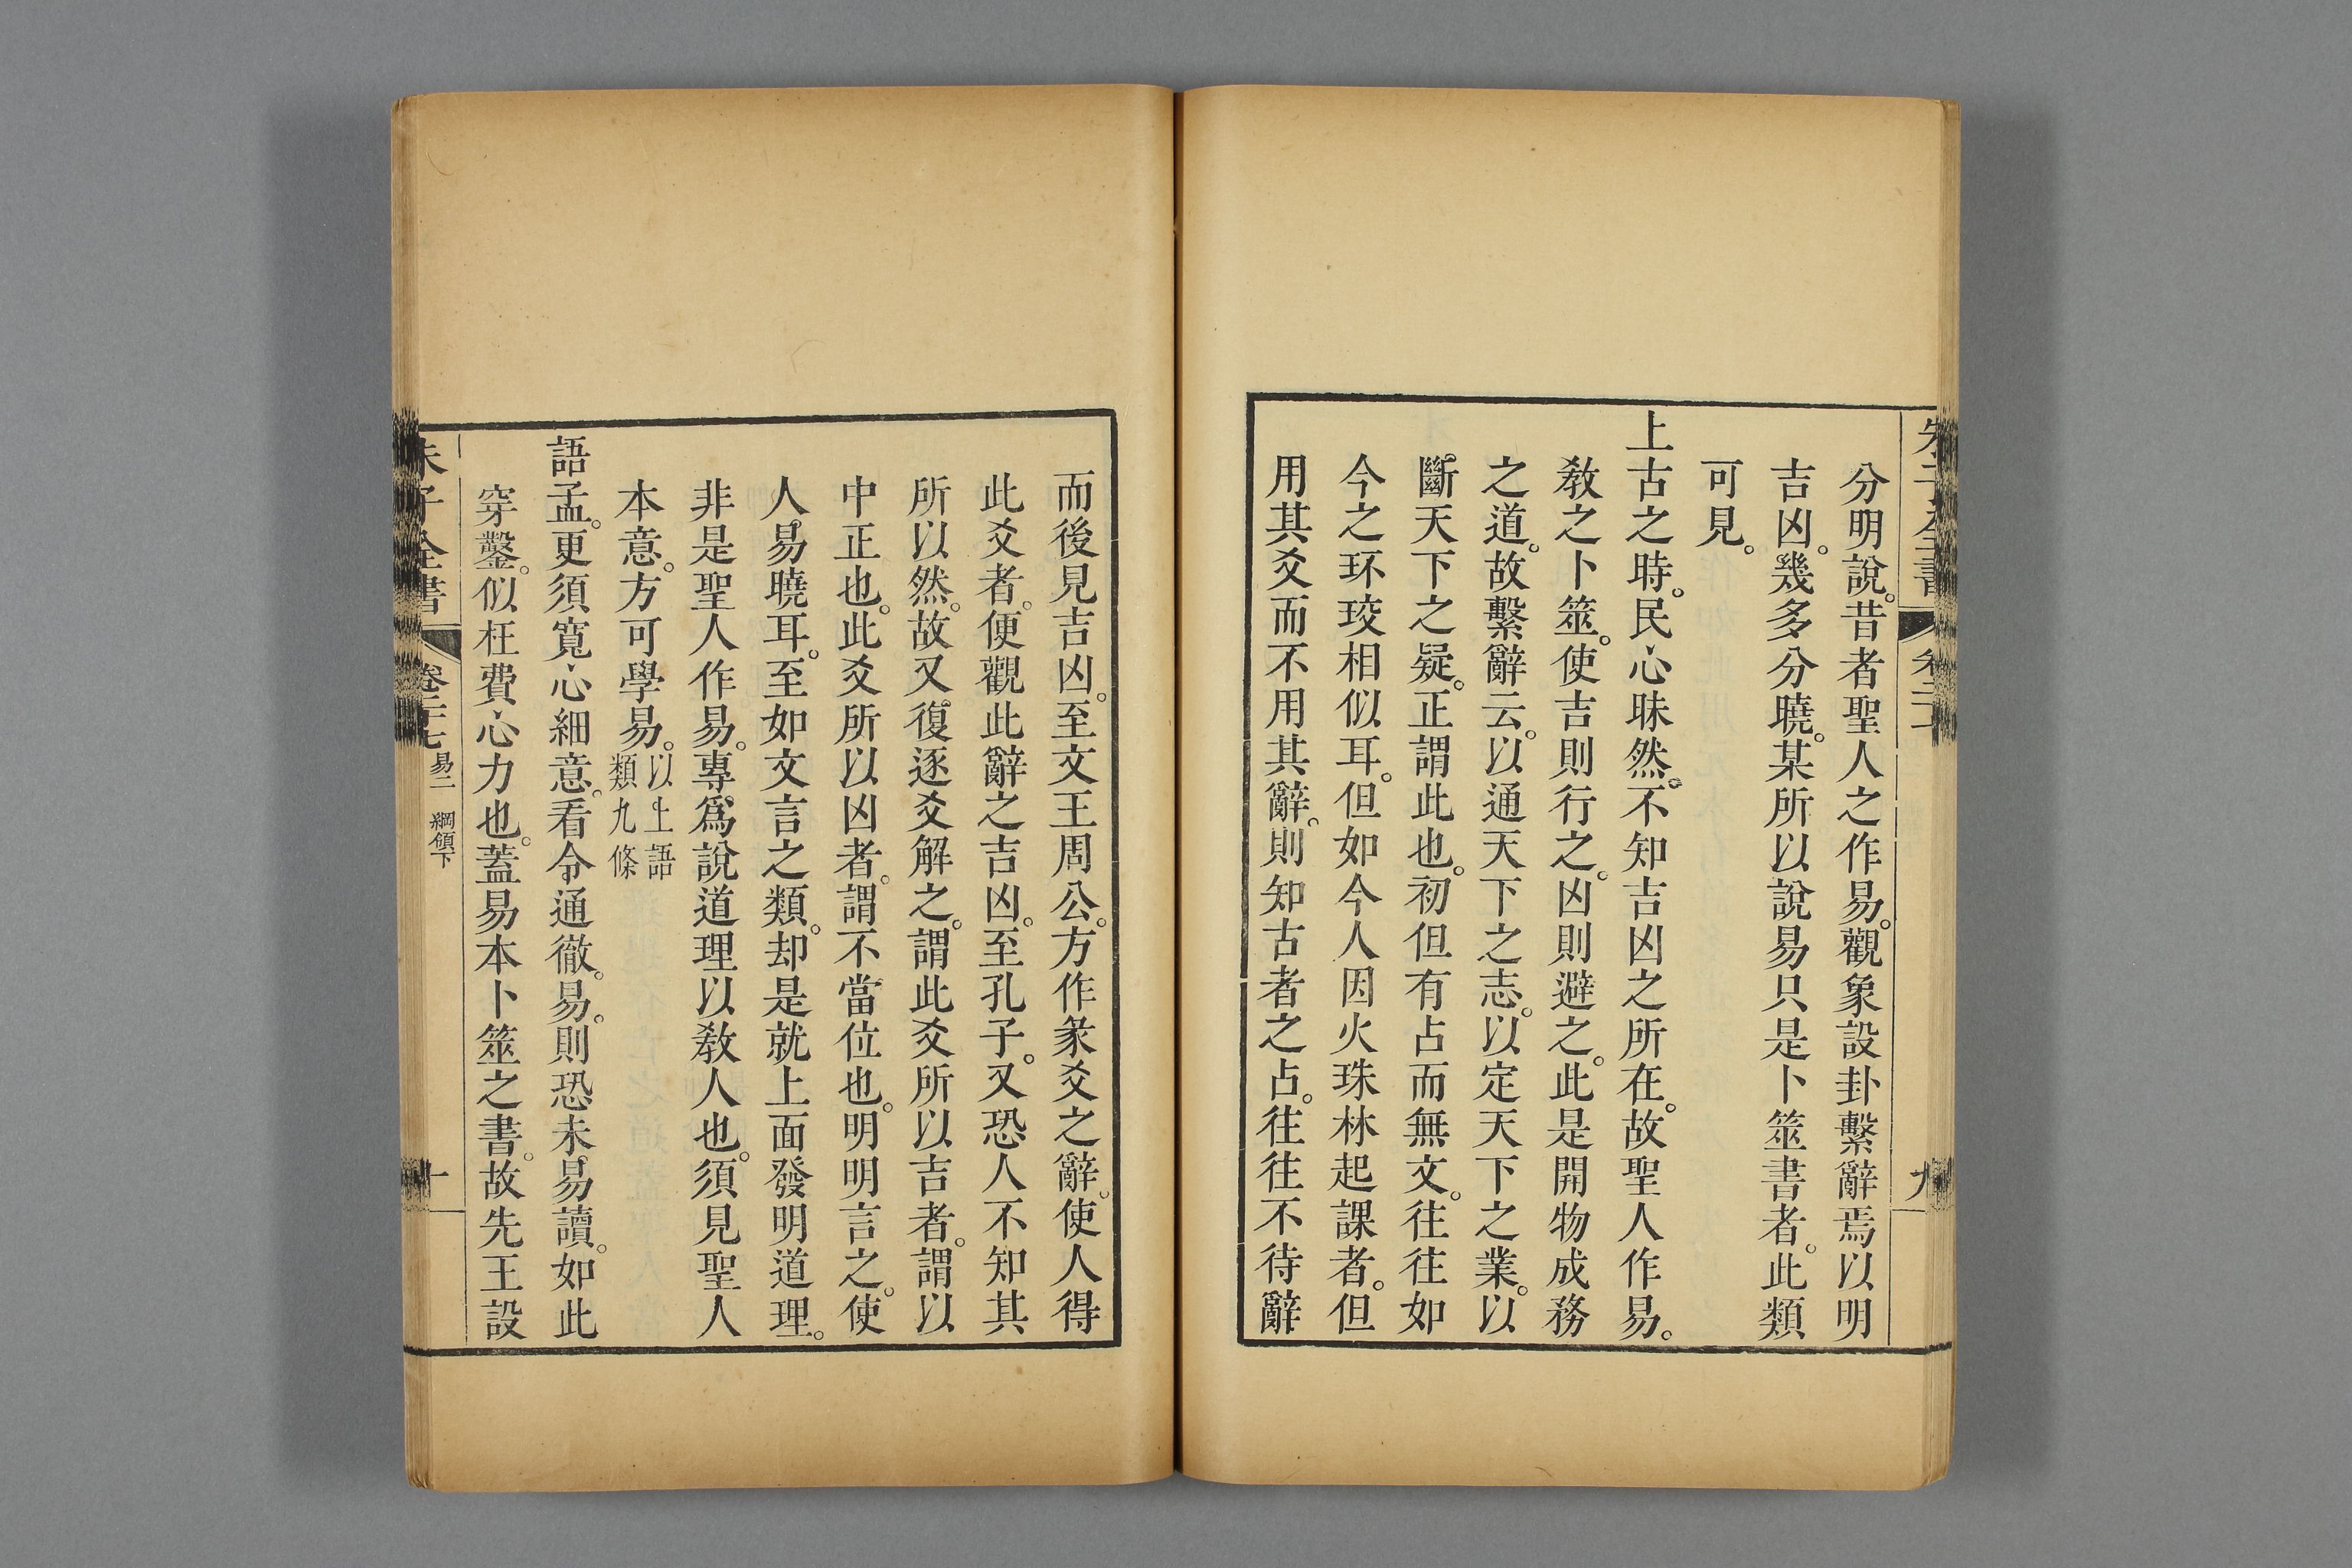 分明說。昔者聖人之作易。觀象設卦繫辭焉以明
吉凶。幾多分曉。某所以說易只是卜筮書者。此類
可見。
上古之時。民心昧然。不知吉凶之所在。故聖人作易。
敎之卜筮。使吉則行之。凶則避之。此是開物成務
之道。故繫辭云。以通天下之志。以定天下之業。以
斷天下之疑。正謂此也。初但有占而無文。往往如
今之环珓相似耳。但如今人因火珠林起課者。但
用其爻而不用其辭。則知古者之占。往往不待辭
而後見吉凶。至文王周公。方作彖爻之辭。使人得
此爻者。便觀此辭之吉凶。至孔子。又恐人不知其
所以然。故又復逐爻解之。謂此爻所以吉者。謂以
中正也。此爻所以凶者。謂不當位也。明明言之。使
人易曉耳。至如文言之類。却是就上面發明道理。
非是聖人作易。專爲說道理以敎人也。須見聖人
本意。方可學易。以上語
類九條
語孟。更須寬心細意。看令通徹。易。則恐未易讀。如此
穿鑿。似枉費心力也。蓋易本卜筮之書。故先王設
朱子全書 卷二十七 易二 綱領下